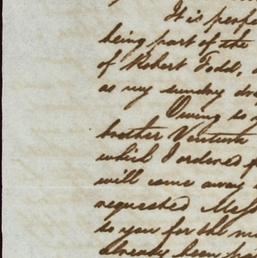 It is prope
being part of the
of Robert Todd,
as my sunday
Owing to
brother
which I ordered f
will come away
requested Mess
to you for the m
already been